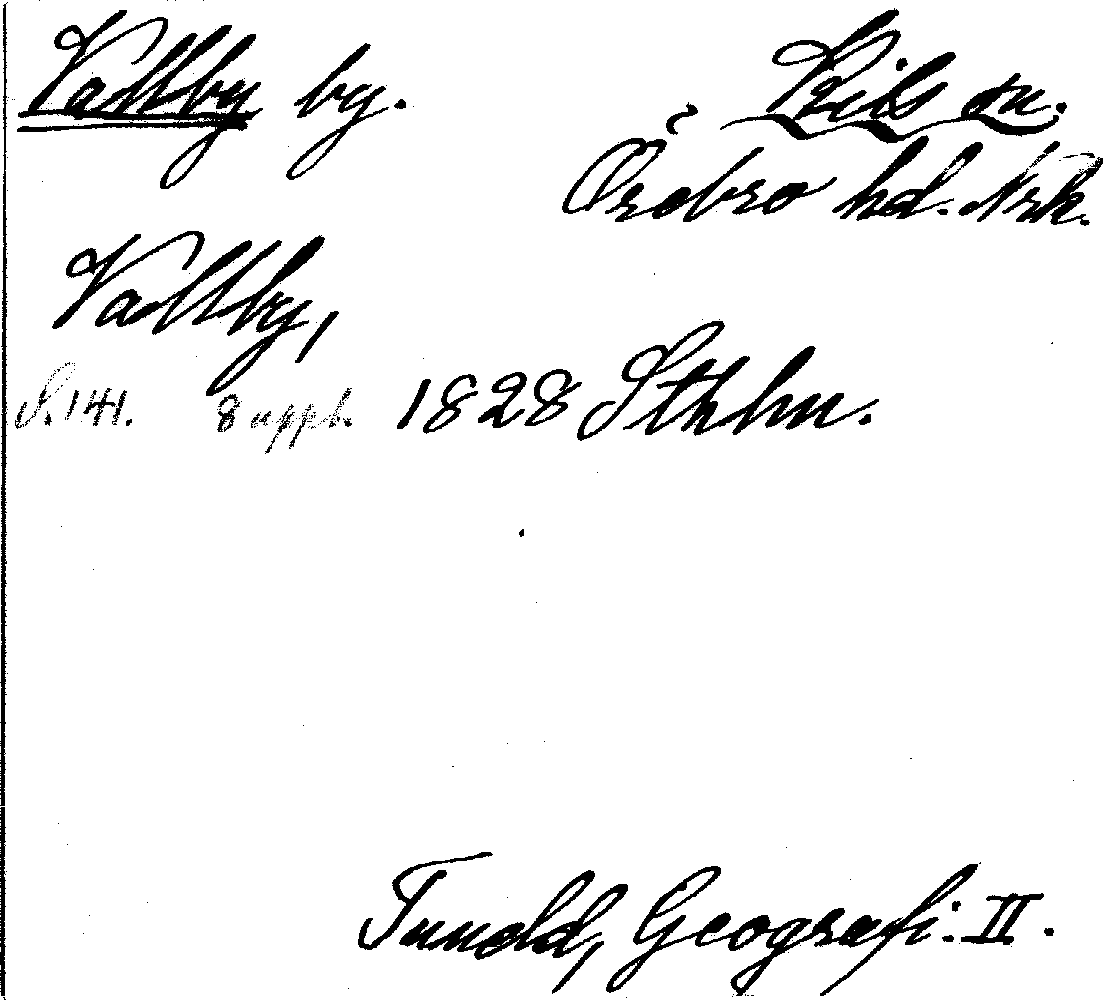 Vallby by. Kils sn.
Örebro hd. Nrk.
Vallby,
S. 141. 8 uppl. 1828 Sthlm.
Tuneld, Geografi. II.